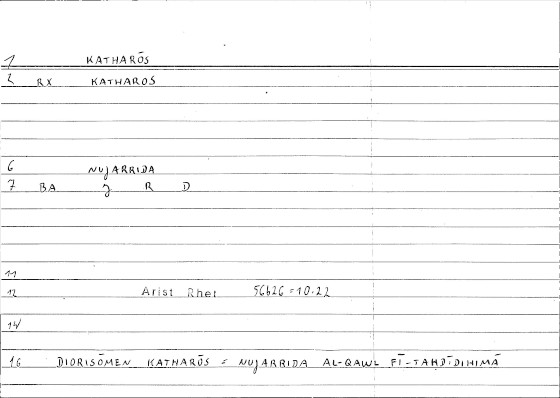 1 KATHARŌS
2 RX KATHAROS
6 NUJARRIDA
7 BA J R D
11
12 Arist Rhet 56b26 = 10.22
14
16 DIORISŌMEN KATHARŌS = NUJARRIDA AL-QAWL FĪ-TAHDĪDIHIMĀ